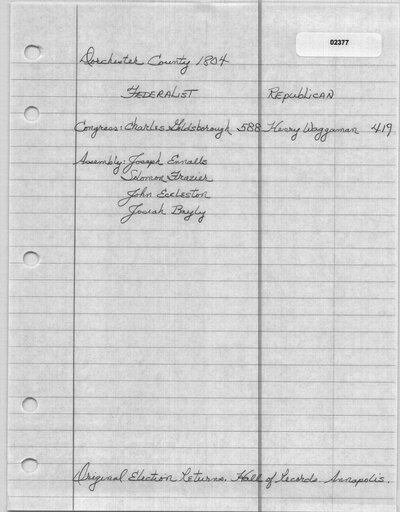 02377
Dorchester County 1804
FEDERALIST REPUBLICAN
Congress: Charles Goldsborough 588 Henry Waggaman 419
Assembly: Joseph Ennalls
Solomon Frazier
John Eccleston
Josiah Bayly
Original Election Returns. Hall of Records. Annapolis.